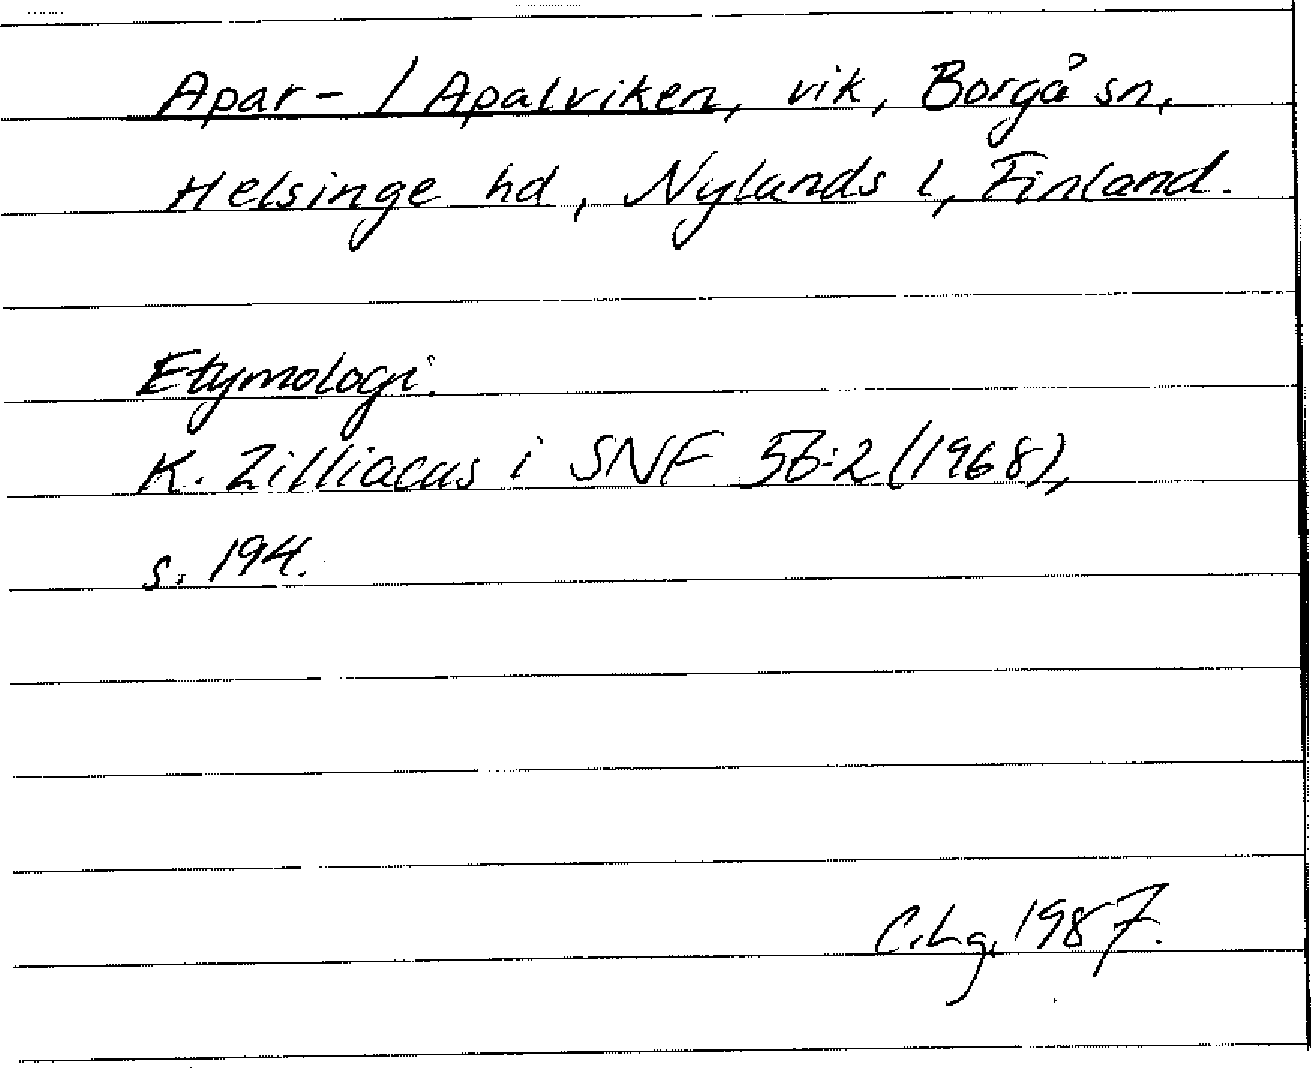 Apar- / Apalviken, vik, Borgå sn,
Helsinge hd, Nylands l, Finland.
Etymologi.
K. Zilliacus i SNF 56:2 (1968),
s. 194.
C.Lg, 1987.